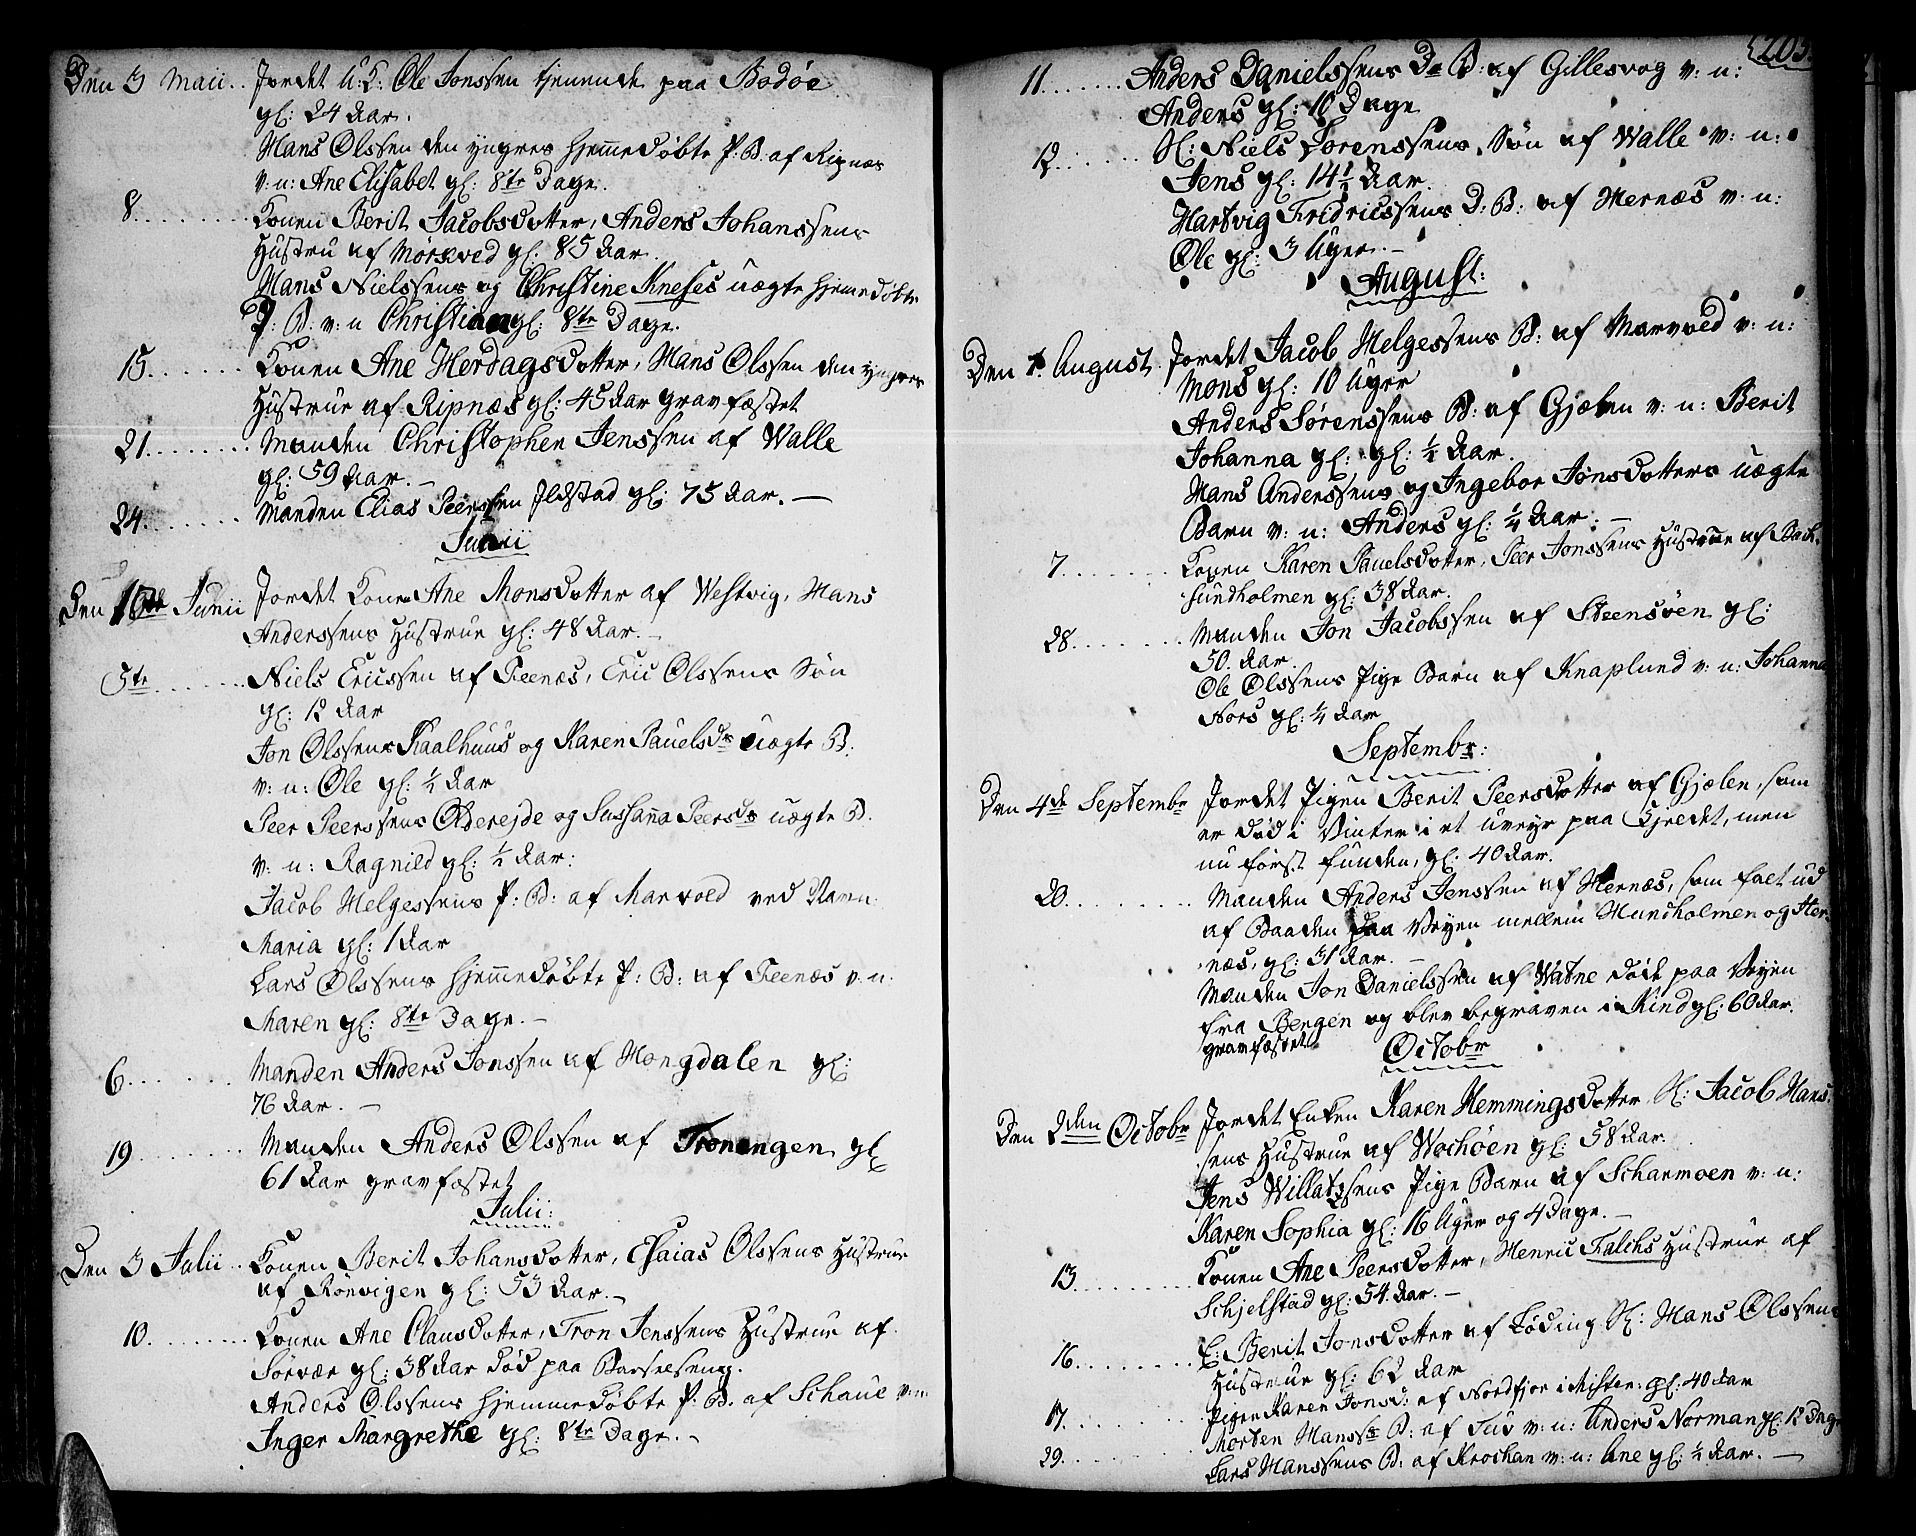 Den 3 Maii.. Jordet U: K: Ole Jonssen tjenende paa Bodöe
gl: 24 Aar.
Hans Olssen den yngres hjemmedöbte P: B. af Ripnæs
v: n: Ane Elisabet gl: 8te Dage.
8......... Konen Berit Jacobsdotter, Anders Johanssens
Hustru af Mörkved gl: 85 Aar.
Hans Nielssens og Christine Kneses uægte hjemedöbte
P: B: v: n Christian gl: 8te Dage.
15....... Konen Ane Herdagsdotter, Hans Olssen den yngres
Hustrue af Ripnæs gl: 45 Aar gravfæstet
21........ Manden Christophen Jenssen af Walle
gl: 59 Aar. —
24....... Manden Elias Peerssen Ildstad gl: 75 Aar. —
Junii
Den 1ste Junii Jordet Konen Ane Monsdotter af Westvig, Hans
Anderssens Hustrue gl: 48 Aar. —
5te....... Niels Ericssen af Seenæs, Eric Olssens Sön
gl: 12 Aar
Jon Olssens Kaalhuus og Karen Pauelsdr uægte B.
v: n: Ole gl: ½ Aar
Peer Peerssens Olderejde og Sussanna Peersdr uægte B.
v: n: Ragnild gl: ½ Aar:
Jacob Helgessens P: B: af Marvold ved Navn
Maria gl: 1 Aar
Lars Olssens hjemmedöbte P: B: af Seenæs v: n:
Maren gl: 8te Dage. —
6....... Manden Anders Jonssen af Hongdalen gl:
76 Aar. —
19....... Manden Anders Olssen af Tronangen gl
61 Aar gravfæstet
Julii:
Den 3 Julii.. Konen Berit Johansdotter, Esaias Olssens Hustrue
af Rönvigen gl: 53 Aar. —
10........ Konen Ane Clausdotter, Tron Jenssens Hustrue af
Sörvær gl: 38 Aar död paa Barselseng.
Anders Olssens hjemmedöbte P: B. af Schaue v: n:
Inger Margrethe gl: 8te Dage. —
203.
11....... Anders Danielssens D: B: af Gillesvog v: n:
Anders gl: 10 Dage
12....... Sl: Niels Lorenssens Sön af Walle v: n:
Jens gl: 14½ Aar.
Hartvig Fridricssens D: B: af Hernæs v: n:
Ole gl: 3 Uger. —
August:
Den 1. August Jordet Jacob Helgessens B: af Marvold v: n:
Mons gl: 10 Uger
Anders Sörenssens B: af Gjælen v: n: Berit
Johanna gl: gl: ½ Aar.
Hans Anderssens og Ingebor Jonsdotters uægte
Barn v: n: Anders gl: ¼ Aar. —
7....... Konen Karen Pauelsdotter, Peer Jonssens Hustrue af Bak-
sundholmen gl: 38 Aar.
28........ Manden Jon Jacobssen af Steensöen gl:
50. Aar.
Ole Olssens Pige Barn af Knaplund v: n: Johanna
Nors gl: ¼ Aar
Septembr:
Den 4de Septembr Jordet Pigen Berit Peersdotter af Gjælen, som
er död i Vinter i et Uveyr paa Fjeldet, men
nu först funden, gl: 40 Aar.
20....... Manden Anders Jenssen af Hernæs, som falt ud
af Baaden paa Veyen mellem Hundholmen og Her-
næs, gl: 31 Aar. —
Manden Jon Danielssen af Watne döde paa Veyen
fra Bergen og blev begraven i Kind gl: 60 Aar.
gravfæstet
Octobr
Den 2den Octobr Jordet Enken Karen Hemmingsdotter Sl: Jacob Hans-
sens Hustrue af Wochöen gl: 58 Aar.
Jens Willatssens Pige Barn af Scharmoen v: n:
Karen Sophia gl: 16 Uger og 4 Dage. —
13....... Konen Ane Peersdotter, Henric Falchs Hustrue af
Schjelstad gl: 54. Aar. —
16........ E: Berit Jonsdotter af Löding Sl: Hans Olssens
Hustrue gl: 62 Aar
17....... Pigen Karen Jonsd: af Nordfjor i Misten: gl: 40 Aar
Morten Hanss: B: af Tuv v: n: Anders Norman gl: 12 Dage
29....... Lars Hanssens B: af Krochan v: n: Ane gl: ½ Aar. —